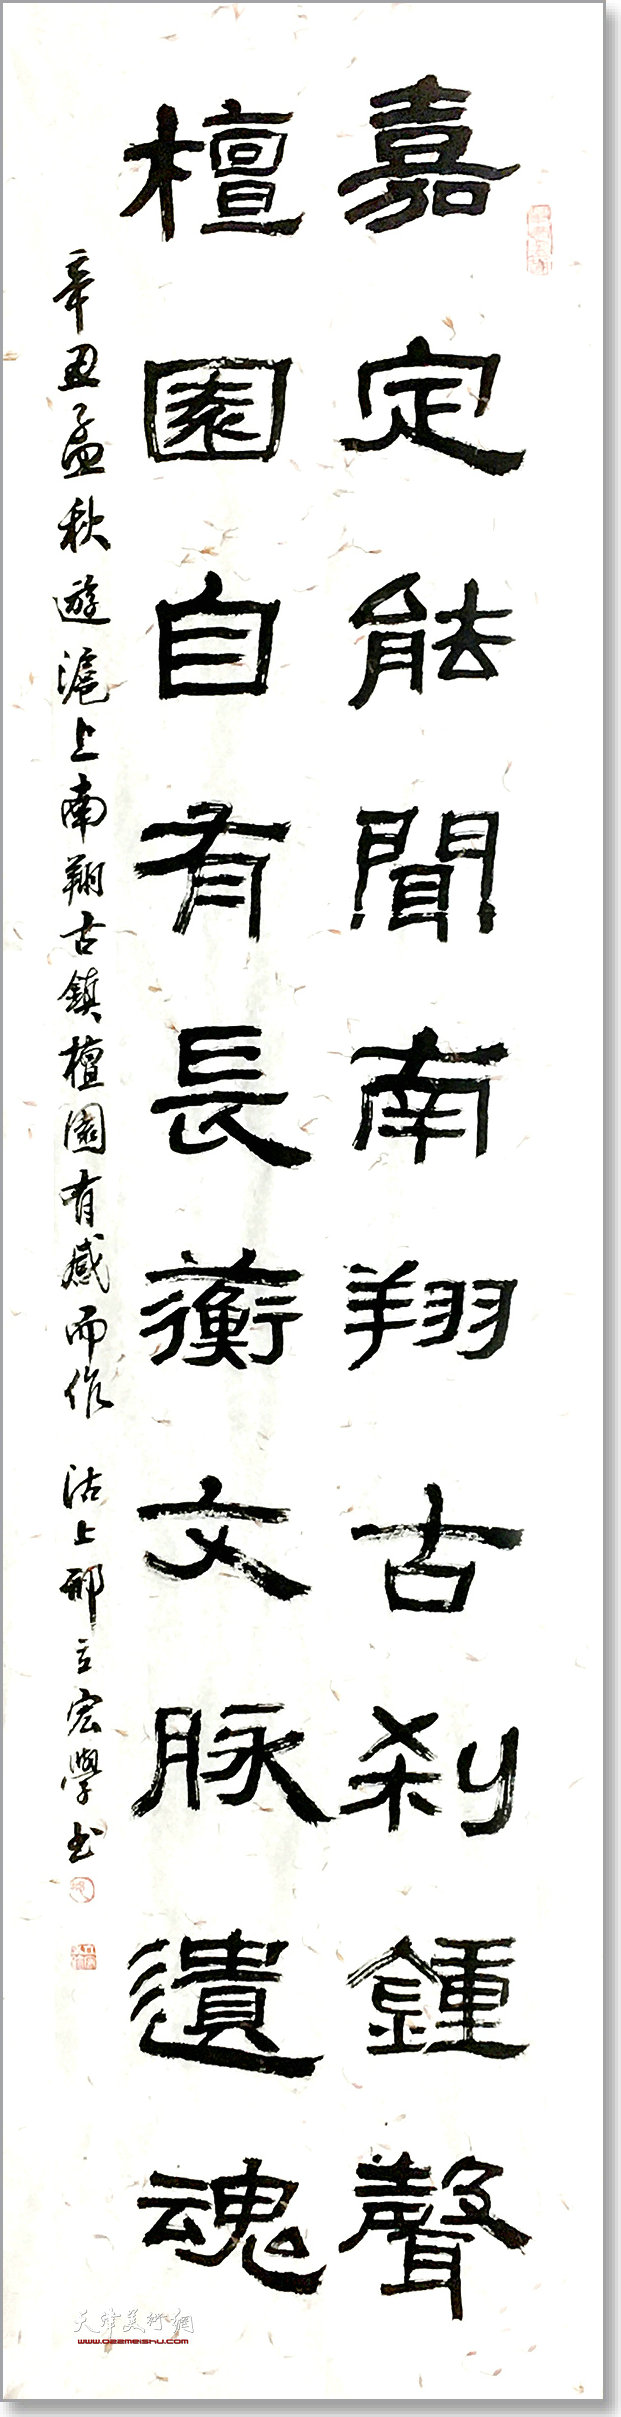 嘉定能聞南翔古刹鍾聲
檀園自有長蘅文脉遺魂
辛丑孟秋遊滬上南翔古鎮檀園有感而作 沽上邢立宏學书
天津美术網
www.022meishu.com